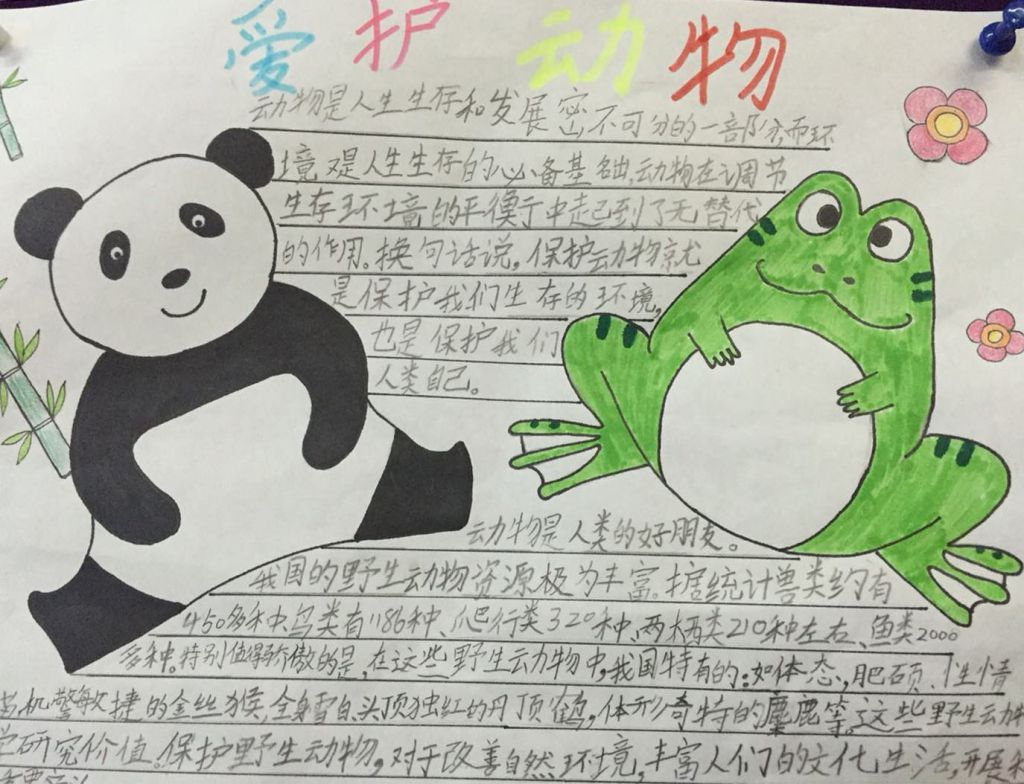 爱护动物
动物是人生生存和发展密不可分的一部分,而环
境又是人生生存的必备基础,动物在调节
生存环境的平衡于中起已到了无替代
的作用。换句话说,保护动物就
是保护我们生存的环境,
也是保护我们
人类自己。
动物是人类的好朋友。
我国的野生动物资源极为丰富。据统计兽类约有
450多种、鸟类有1186种、爬行类320种、两栖类210种左右、鱼类2000
多种。特别值得骄傲的是,在这些野生动物中,我国特有的:如体态,肥硕、性情
机警敏捷的金丝猴、全身雪白、头顶独红的丹顶鹤,体形奇特的麋鹿等。这些野生动物
研究价值。保护野生动物,对于改善自然环境,丰富人们的文化生活,开展